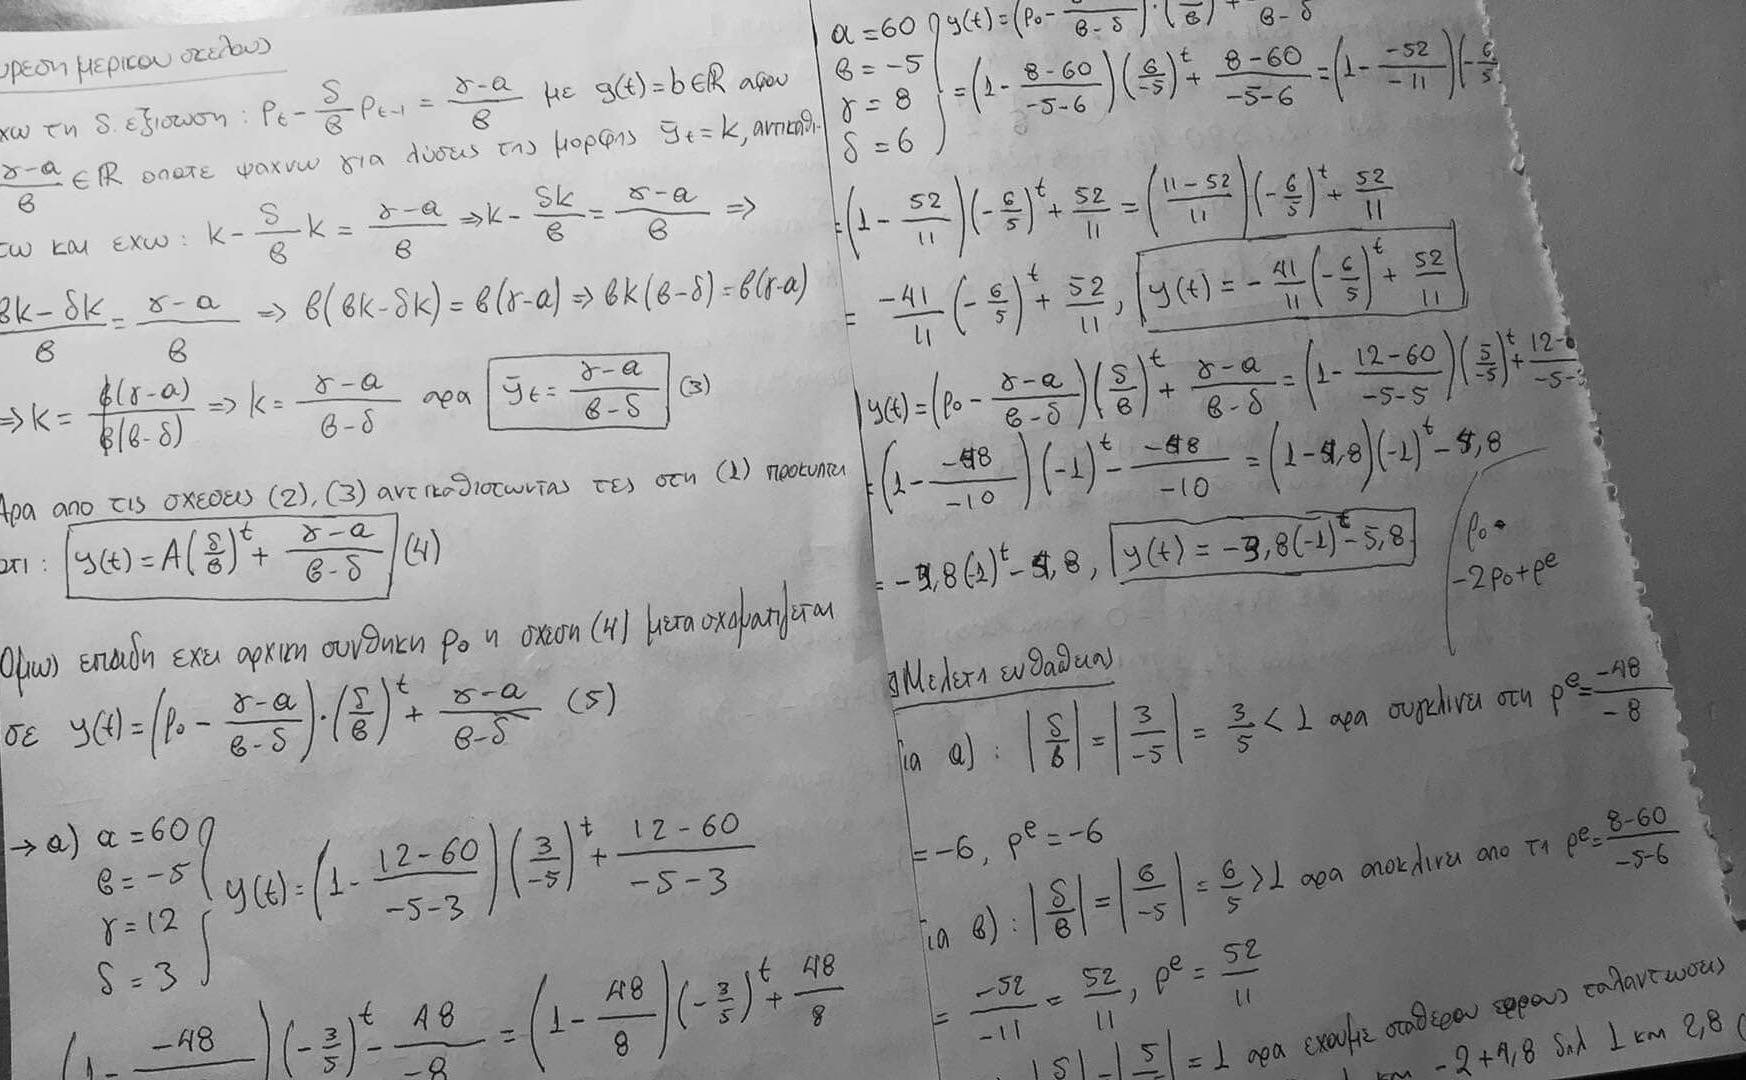 μερικου σκελους
τη δ. εξισωση: P_t - δ/β P_{t-1} = (γ-α)/β με g(t) = b ∈ ℝ αφου
(γ-α)/β ∈ ℝ οποτε ψαχνω για λυσεις της μορφης ȳ_t = k, αντικαθι-
και εχω: k - δ/β k = (γ-α)/β ⇒ k - δk/β = (γ-α)/β ⇒
(βk-δk)/β = (γ-α)/β ⇒ β(βk-δk) = β(γ-α) ⇒ βk(β-δ) = β(γ-α)
⇒ k = β(γ-α)/β(β-δ) ⇒ k = (γ-α)/(β-δ) αρα ȳ_t = (γ-α)/(β-δ) (3)
Αρα απο τις σχεσεις (2), (3) αντικαθιστωντας τες στη (1) προκυπτει
οτι: y(t) = A(δ/β)^t + (γ-α)/(β-δ) (4)
Ομως επειδη εχει αρχικη συνθηκη p₀ η σχεση (4) μετασχηματιζεται
σε y(t) = (p₀ - (γ-α)/(β-δ))·(δ/β)^t + (γ-α)/(β-δ) (5)
→ α) α = 60
β = -5
γ = 12
δ = 3
y(t) = (1 - (12-60)/(-5-3))(3/-5)^t + (12-60)/(-5-3)
(1 - -48)(-3/5)^t - 48/-8 = (1 - 48/8)(-3/5)^t + 48/8
α = 60
β = -5
γ = 8
δ = 6
y(t) = (p₀ - /(β-δ))·(/β) + /(β-δ)
= (1 - (8-60)/(-5-6))(6/-5)^t + (8-60)/(-5-6) = (1 - -52/-11)(-6/5
= (1 - 52/11)(-6/5)^t + 52/11 = ((11-52)/11)(-6/5)^t + 52/11
= -41/11 (-6/5)^t + 52/11, y(t) = -41/11 (-6/5)^t + 52/11
y(t) = (p₀ - (γ-α)/(β-δ))(δ/β)^t + (γ-α)/(β-δ) = (1 - (12-60)/(-5-5))(5/-5)^t + 12-6 /-5-
= (1 - -48/-10)(-1)^t - -48/-10 = (1-4,8)(-1)^t - 4,8
= -3,8(-1)^t - 4,8, y(t) = -3,8(-1)^t - 5,8
p₀
-2p₀+p^e
Μελετη ευσταθειας
ια α): |δ/β| = |3/-5| = 3/5 < 1 αρα συγκλινει στη p^e = -48/-8
= -6, p^e = -6
ια β): |δ/β| = |6/-5| = 6/5 > 1 αρα αποκλινει απο τη p^e = (8-60)/(-5-6)
= -52/-11 = 52/11, p^e = 52/11
|δ| = |5| = 1 αρα εχουμε σταθερου ευρους ταλαντωσεις
-2+4,8 δηλ 1 και 2,8